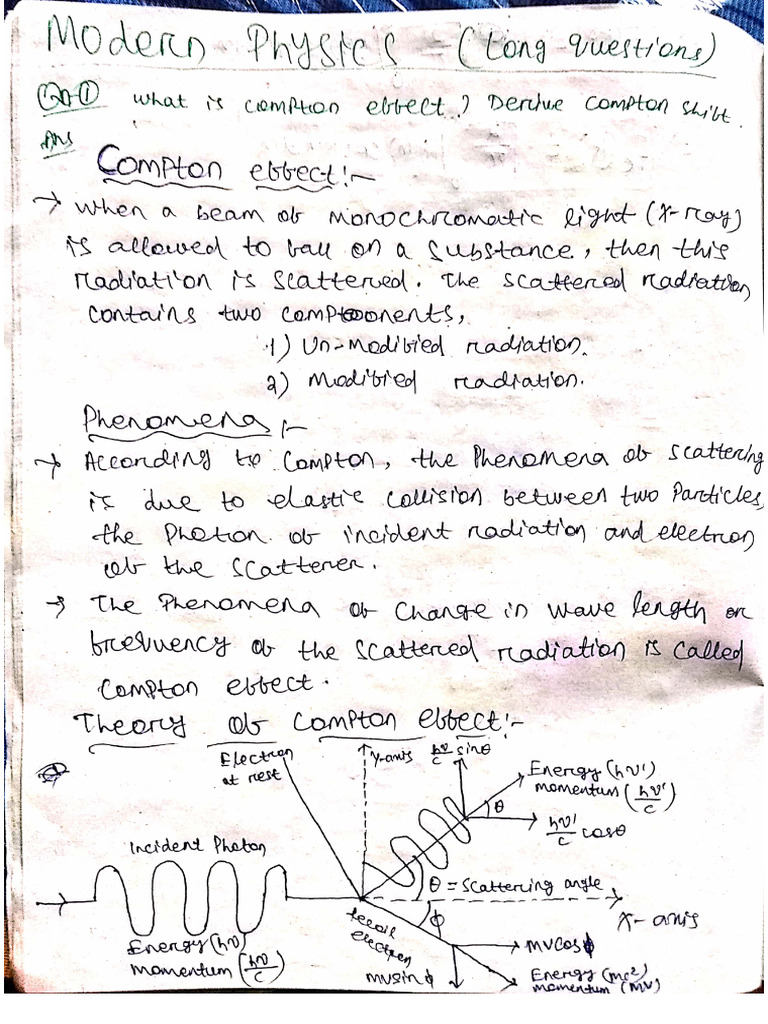 Modern Physics - (Long questions)
Q.1 What is compton effect? Derive compton shift.
Ans
Compton effect:-
→ When a beam of monochromatic light (X-ray)
is allowed to fall on a substance, then this
radiation is scattered. The scattered radiation
contains two components,
1) Un-modified radiation.
2) Modified radiation.
Phenomena :-
→ According to Compton, the Phenomena of scattering
is due to elastic collision between two Particles,
the Photon of incident radiation and electron
of the scatterer.
→ The Phenomena of change in wave length or
frequency of the scattered radiation is called
compton effect.
Theory of Compton effect:-
Electron
at rest
Y-axis
hν/c sinθ
Energy (hν')
momentum (hν'/c)
θ
hν'/c cosθ
Incident Photon
θ = scattering angle
X-axis
ϕ
recoil
electron
Energy (hν)
momentum (hν/c)
mvcosϕ
mvsinϕ
Energy (mc²)
momentum (mv)